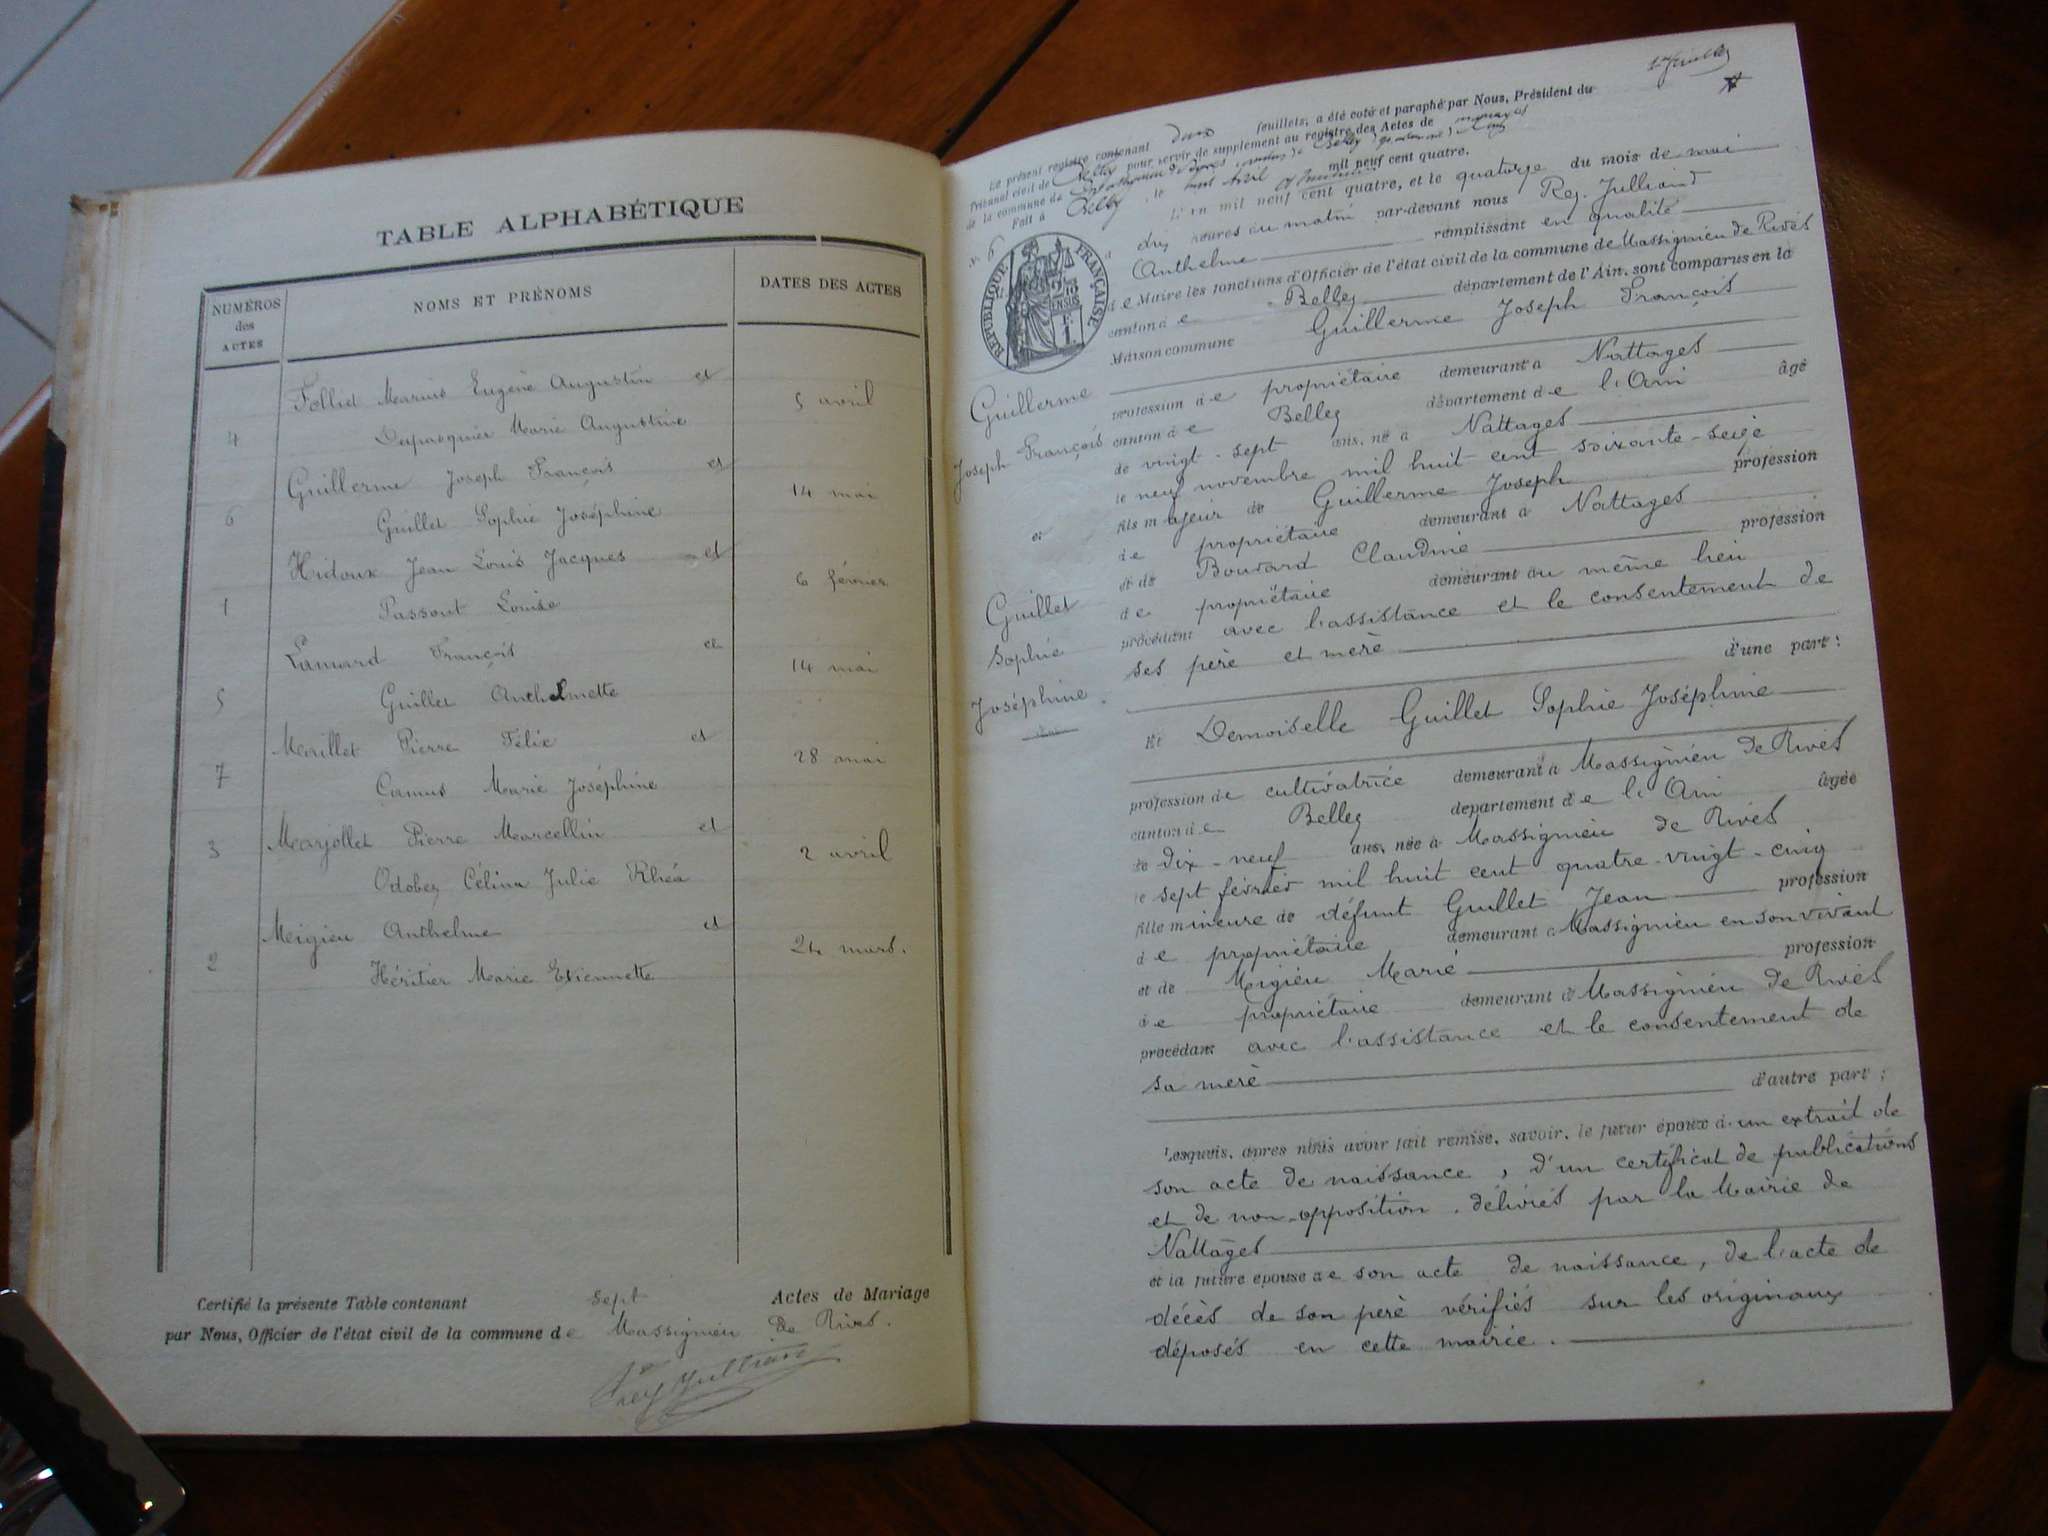 TABLE ALPHABÉTIQUE
NUMÉROS
des
ACTES
NOMS ET PRÉNOMS
DATES DES ACTES
4
Follied Marius Eugène Augustin et
Dupasquier Marie Augustine
5 avril
6
Guillerme Joseph François et
Guillet Sophie Joséphine
14 mai
1
Hidoux Jean Louis Jacques et
Passout Louise
6 février
5
Lamard François et
Guillet Anthelmette
14 mai
7
Maillet Pierre Félix et
Camus Marie Joséphine
28 mai
3
Marjollet Pierre Marcellin et
Odobez Célina Julie Rhéa
2 avril
2
Migieu Anthelme et
Héritier Marie Etiennette
24 mars.
Certifié la présente Table contenant sept Actes de Mariage
par Nous, Officier de l'état civil de la commune de Massignieu de Rives.
1er feuillet
Le présent registre contenant deux feuillets, a été coté et paraphé par Nous, Président du
Tribunal civil de Belley pour servir de supplément au registre des Actes de mariages
de la commune de
Fait à Belley, le mil neuf cent quatre.
No 6
L'an mil neuf cent quatre, et le quatorze du mois de mai
à dix heures du matin par-devant nous Rey. Julliand
Anthelme remplissant en qualité
de Maire les fonctions d'Officier de l'état civil de la commune de Massignieu de Rives
canton de Belley département de l'Ain, sont comparus en la
Maison commune Guillerme Joseph François
RÉPUBLIQUE FRANÇAISE
Guillerme
Joseph François
et
Guillet
Sophie
Joséphine.
profession de propriétaire demeurant à Nattages
canton de Belley département de l'Ain âgé
de vingt-sept ans, né à Nattages
le neuf novembre mil huit cent soixante-seize
fils majeur de Guillerme Joseph profession
de propriétaire demeurant à Nattages
et de Bouvard Claudine profession
de propriétaire demeurant au même lieu
procédant avec l'assistance et le consentement de
ses père et mère
d'une part:
Et Demoiselle Guillet Sophie Joséphine
profession de cultivatrice demeurant à Massignieu de Rives
canton de Belley département de l'Ain âgée
de dix-neuf ans, née à Massignieu de Rives
le sept février mil huit cent quatre-vingt-cinq
fille mineure de défunt Guillet Jean profession
de propriétaire demeurant à Massignieu en son vivant
et de Migieu Marie profession
de propriétaire demeurant à Massignieu de Rives
procédant avec l'assistance et le consentement de
sa mère
d'autre part;
Lesquels, après nous avoir fait remise, savoir, le futur époux d'un extrait de
son acte de naissance, d'un certificat de publications
et de non-opposition délivrés par la Mairie de
Nattages
et la future épouse de son acte de naissance, de l'acte de
décès de son père vérifiés sur les originaux
déposés en cette mairie.